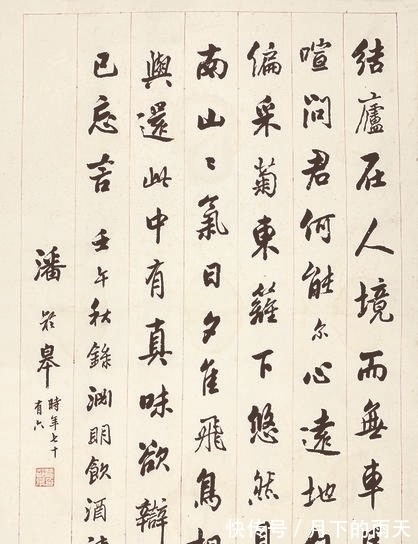 结廬在人境而無車
喧問君何能尔心遠地
偏采菊東籬下悠然
南山〻氣日夕佳飛鳥相
與還此中有真味欲辯
已忘言 壬午秋錄渊明飲酒詩
潘龄皋 時年七十
有六
快传号 / 月下的雨天